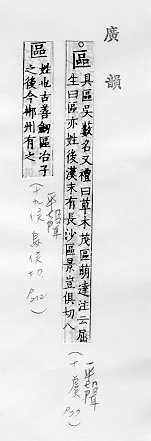 廣韻
區具區吳藪名又禮曰草木茂區萌達注云屈
生曰區亦姓後漢末有長沙區景豈俱切八
平聲
(十虞 P77)
區姓也古善劒區冶子
之後今郴州有之
平聲
十九侯 烏侯切 P212